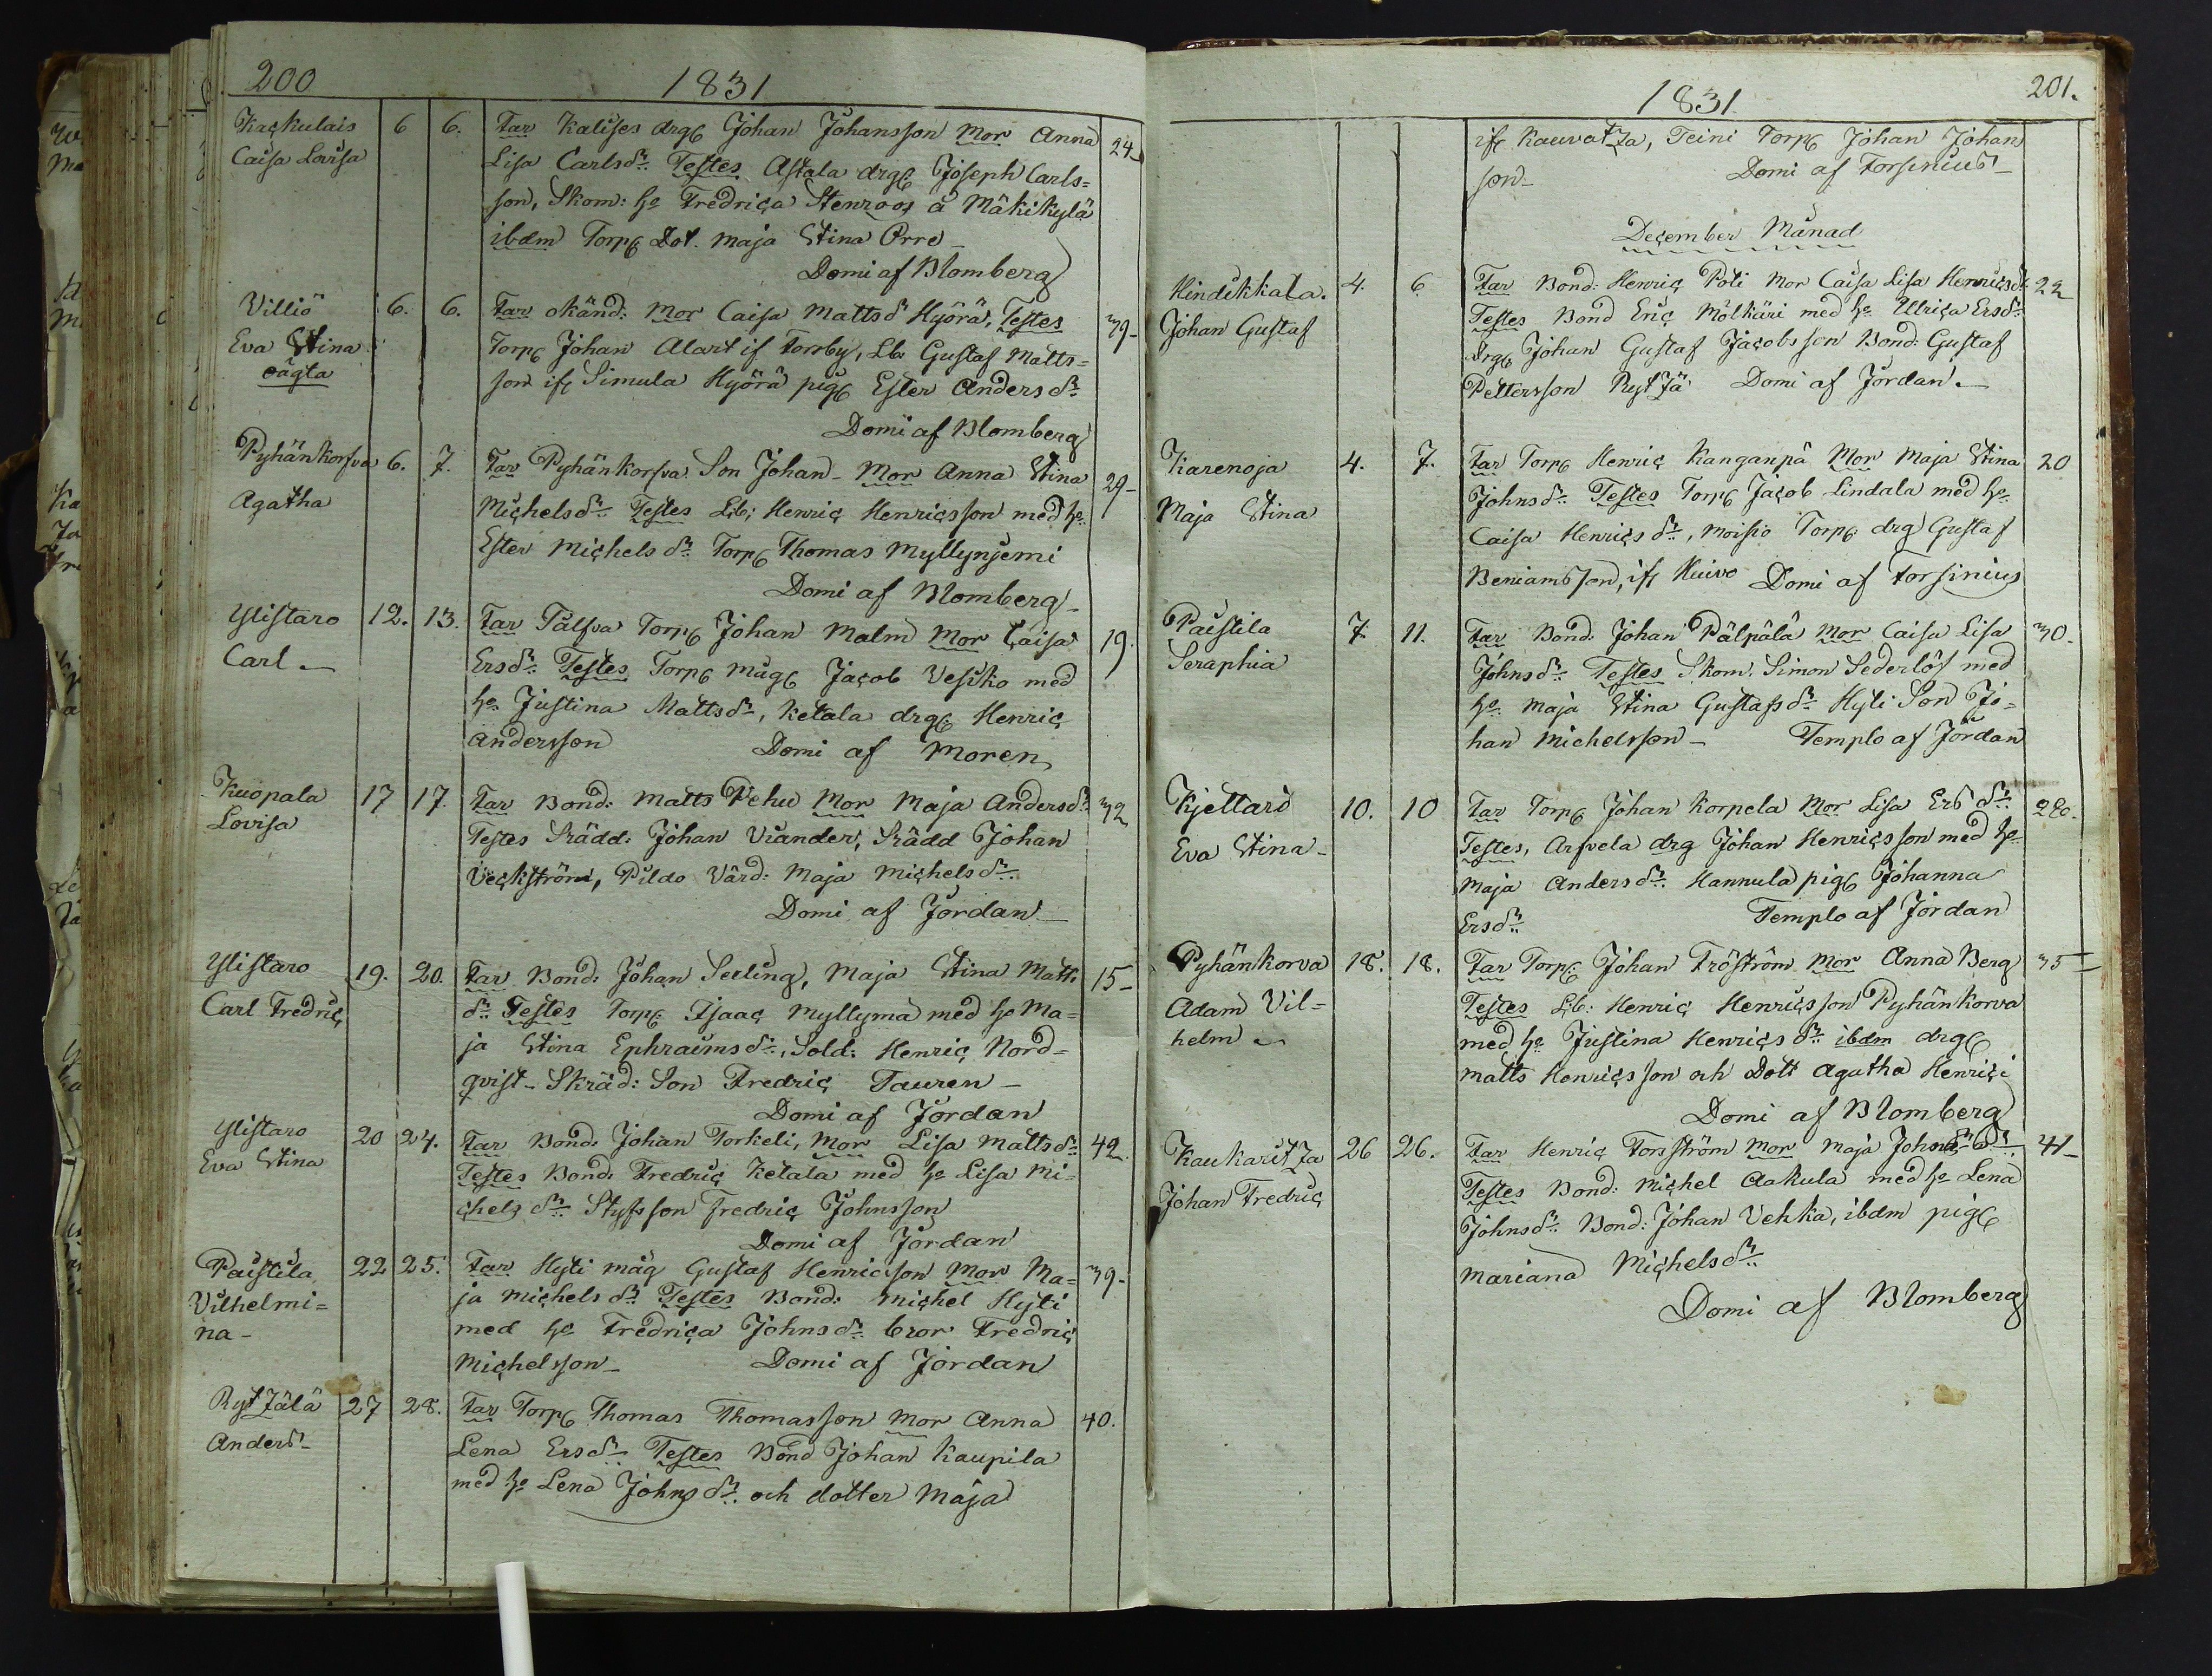 200
1831
Kaçkulais 6 6. Far Kalises drg Johan Johansson Mor Anna 24
Caisa Lovisa Lisa Carlsdr. Testes Astala drg Joseph Carls=
son, Skom: h. Fredriça Stenroos å Mäkikylä
ibdm Torp Dot. Maja Stina Orre
Domi af Blomberg
Villiö 6. 6. Far okänd: Mor Caisa Mattsdr Hyörä, Testes 39-
Eva Stina Torp Johan Alart if Torrby, Lb: Gustaf Matts=
oägta son if Simula Hyörä pig Ester Andersdr
Domi af Blomberg
Pyhänkorfva 6. 7. Far Pyhänkorfva Son Johan - Mor Anna Stina 29-
Agatha Michelsdr Testes Lb: Henriç Henriçsson med h.
Ester Michelsdr Torp Thomas Myllynjemi
Domi af Blomberg
Ylistaro 12. 13. Far Tälfva Torp Johan Malm Mor Caisa 19.
Carl - Ersdr Testes Torp måg Jaçob Vesiko med
h. Justina Mattsdr, Ketala drg Henriç
Andersson Domi af Moren
Kuopala 17 17. Far Bond: Matts Pehu Mor Maja Andersdr 32
Lovisa Testes Srädd: Johan Viander, Srädd Johan
Veckström, Pildo Värd: Maja Michelsdr.
Domi af Jordan
Ylistaro 19. 20. Far Bond: Johan Seeling, Maja Stina Matts 15-
Carl Fredriç dr. Testes Torp: Isaaç Myllymä med h. Ma=
ja Stina Ephraimsdr, Sold: Henriç Nord=
qvist - Skräd: Son Fredriç Tauren -
Domi af Jordan
Ylistaro 20 24. Far Bond: Johan Torkeli, Mor Lisa Mattsdr 42.
Eva Stina Testes Bond: Fredriç Ketala med h. Lisa Mi=
chelsdr Styfsson Fredriç Johnsson
Domi af Jordan
Paistila 22 25. Far Hyti måg Gustaf Henricsson Mor Ma= 39-
Vilhelmi= ja Michelsdr Testes Bond: Michel Hyti
na - med h. Fredriça Johnsdr bror Fredriç
Michelsson - Domi af Jordan
Rytzälä 27 28. Far Torp Thomas Thomasson Mor Anna 40.
Anders - Lena Ersdr. Testes Bond Johan Kaupila
med h. Lena Johnsdr. och dotter Maja
201.
1831
if Kauvatza, Teini Torp Johan Johans
son - Domi af Forsinius -
December Månad
Hindikkala. 4. 6. Far Bond: Henriç Pöti Mor Caisa Lisa Henriçsdr 22
Johan Gustaf Testes Bond Eriç Mölkäri med h. Ullriça Ersdr
drg Johan Gustaf Jaçobsson Bond: Gustaf
Pettersson Rytzä Domi af Jordan. -
Karenoja 4. 7. Far Torp Henriç Kanganpä Mor Maja Stina 20
Maja Stina Johnsdr. Testes Torp Jaçob Lindala med h.
Caisa Henriçsdr, Moisio Torp: drg Gustaf
Beniamsson, if Huivo Domi af Forsinius
Paistila 7. 11. Far Bond: Johan Pälpälä Mor Caisa Lisa 30.
Seraphia Johnsdr. Testes Skom. Simon Sederlöf med
h. Maja Stina Gustafsdr Hyti Son Jo=
han Michelsson - Templo af Jordan
Kjettarö 10. 10 Far Torp Johan Korpela Mor Lisa Ersdr 28.
Eva Stina - Testes, Arfvela drg Johan Henriçsson med h.
Maja Andersdr. Hannula pig Johanna
Ersdr. Templo af Jordan
Pyhänkorva 18. 18. Far Torp: Johan Fröström Mor Anna Berg 35
Adam Vil= Testes Lb: Henriç Henriçsson Pyhänkorva
helm med h. Justina Henriçsdr ibdm drg
Matts Henriçsson och Dott Agatha Henriçi
Domi af Blomberg
Kaukaritza 26 26. Far Henriç Forsström Mor Maja Johnsdr. 41-
Johan Fredriç Testes Bond: Michel Aakula med h. Lena
Johnsdr. Bond: Johan Vehka, ibdm pig
Mariana Michelsdr.
Domi af Blomberg